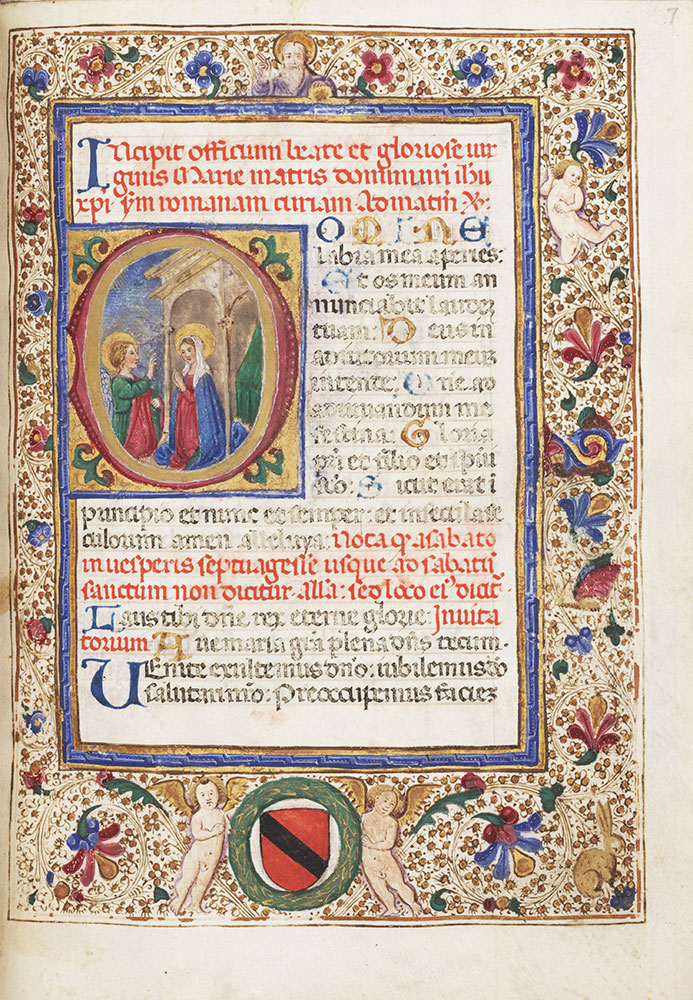 7
Incipit officium beate et gloriose uir
ginis Marie matris domini nr̄i ih̄u
xp̄i s̄m romanam curiam Ad matin̄ ℣:
DOMINE
labia mea aperies:
Et os meum an
nunciabit laudez
tuam: Deus in
adiutorium meuz
intende: Dn̄e ad
adiuuandum me
festina: Gloria
pr̄i et filio et spirii
sc̄o: Sicut erat ī
principio et nunc et semper: et in secula se
culorum amen alleluya: Nota qꝫ a sabato
in uesperis septuagesīe usque ad sabatū
sanctum non dicitur alla: sed loco ei' dicit̄
Laus tibi dn̄e rex eterne glorie: Inuita
torium Aue maria gr̄a plena dn̄s tecum.
Uenite exultemus dn̄o: iubilemus dō
salutari nr̄o: Preoccupemus faciez